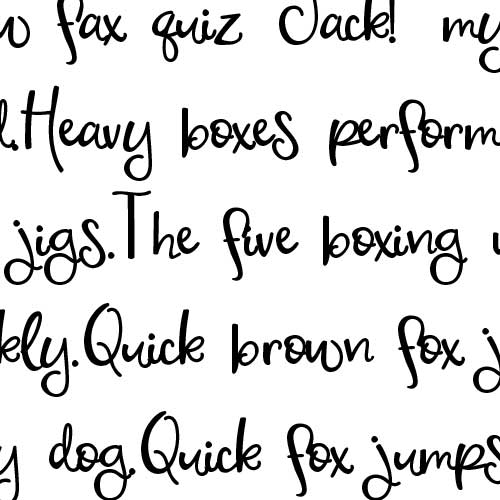 fax quiz Jack! my
.Heavy boxes perform
jigs.The five boxing
kly.Quick brown fox j
y dog.Quick fox jumps